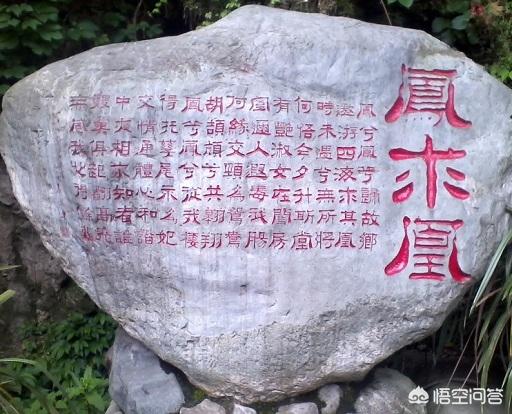 鳳求凰
鳳兮鳳兮歸故鄉
遨游四海求其凰
時未遇兮無所將
何悟今夕升斯堂
有艷淑女在閨房
室邇人遐毒我腸
何緣交頸為鴛鴦
胡頡頏兮共翱翔
鳳兮鳳兮從我棲
得托孳尾永為妃
交情通體心和諧
中夜相從知者誰
雙翼俱起翻高飛
無感我思使余悲
悟空问答